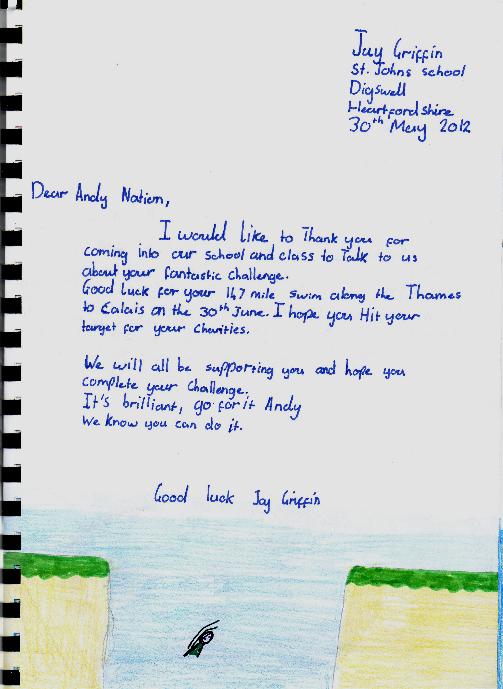 Jay Griffin
St. Johns school
Digswell
Heartfordshire
30th May 2012
Dear Andy Nation,
I would like to Thank you for
coming into our school and class to Talk to us
about your fantastic challenge.
Good Luck for your 147 mile swim along the Thames
to Calais on the 30th June. I hope you Hit your
target for your Charities.
We will all be supporting you and hope you
complete your Challenge.
It's brilliant, go for it Andy
We know you can do it.
Good luck Jay Griffin